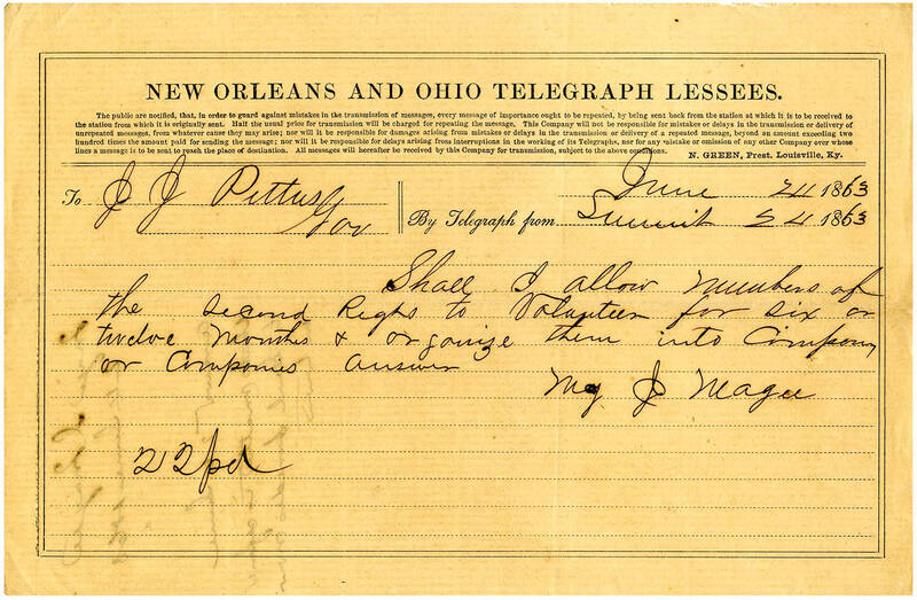 NEW ORLEANS AND OHIO TELEGRAPH LESSEES.
The public are notified, that, in order to guard against mistakes in the transmission of messages, every message of importance ought to be repeated, by being sent back from the station at which it is to be received to
the station from which it is originally sent. Half the usual price for transmission will be charged for repeating the message. This Company will not be responsible for mistakes or delays in the transmission or delivery of
unrepeated messages, from whatever cause they may arise; nor will it be responsible for damages arising from mistakes or delays in the transmission or delivery of a repeated message, beyond an amount exceeding two
hundred times the amount paid for sending the message; nor will it be responsible for delays arising from interruptions in the working of its Telegraphs, nor for any mistake or omission of any other Company over whose
lines a message is to be sent to reach the place of destination. All messages will hereafter be received by this Company for transmission, subject to the above conditions.
N. GREEN, Prest. Louisville, Ky.
June 24 1863
To J J Pettus
Gov
By Telegraph from Summit 24 1863
Shall I allow numbers of
the second Regts to Volunteer for six or
twelve Months & organize them into Company
or Companies answer
J Magee
22 pd